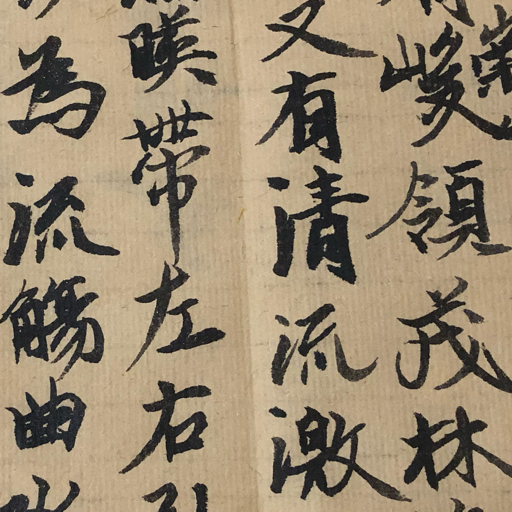 崇
峻領茂林
又有清流激
暎帶左右引
為流觴曲水